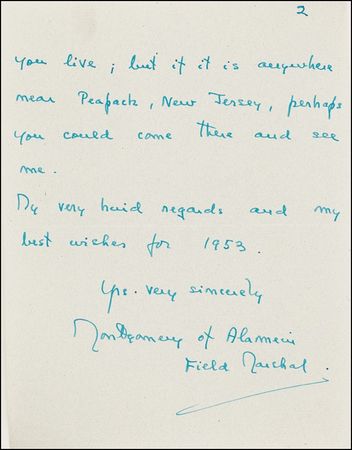 2
you live; but if it is anywhere
near Peapack, New Jersey, perhaps
you could come there and see
me.
My very kind regards and my
best wishes for 1953.
Yrs. very sincerely
Montgomery of Alamein
Field Marshal.